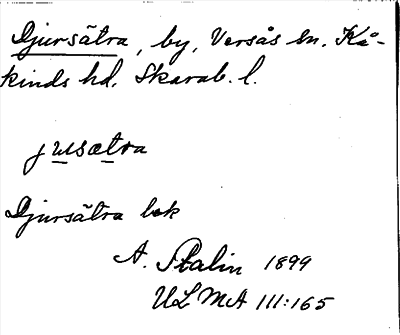 Djursätra, by, Versås sn. Kå-
kinds hd. Skarab. l.
jusætra
Djursätra bok
A. Stalin 1899
ULMA III:165